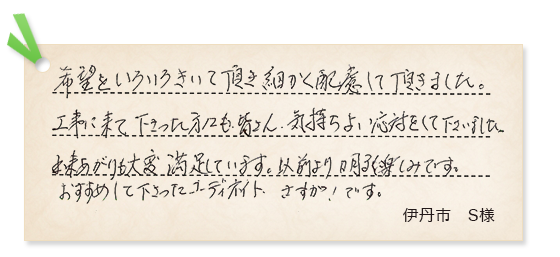 希望をいろいろきいて頂き細かく配慮して頂きました。
工事に来て下さった方にも皆さん、気持ちよい応対をして下さいました
出来あがりも大変満足しています。以前より明るく楽しみです。
おすすめして下さったコーディネイト、さすが!です。
伊丹市 S様